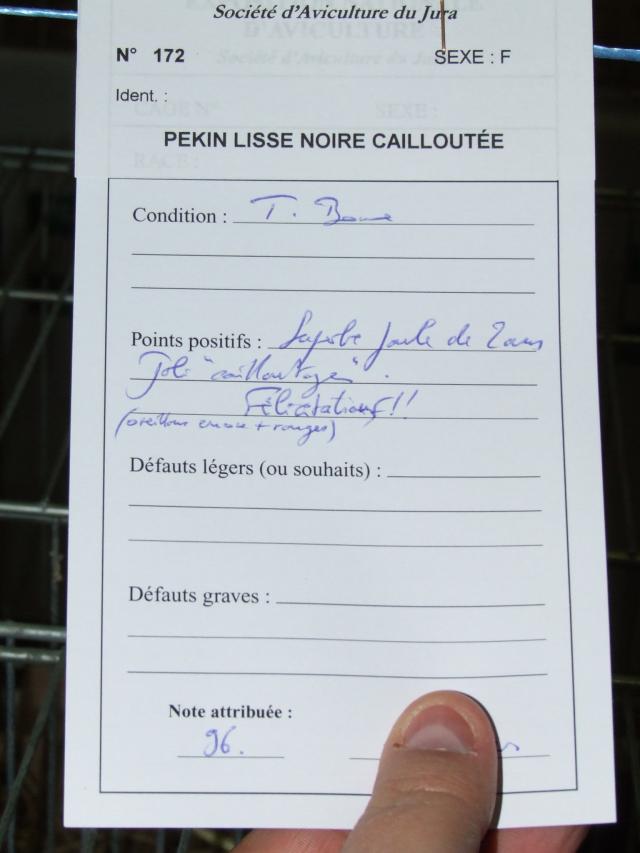 Société d'Aviculture du Jura
N° 172 SEXE : F
Ident. :
PEKIN LISSE NOIRE CAILLOUTÉE
Condition : T. Bonne
Points positifs : Superbe poule de 2 ans
Joli "cailloutage".
Félicitations!!
(oreillons encore + rouges)
Défauts légers (ou souhaits) :
Défauts graves :
Note attribuée :
96.